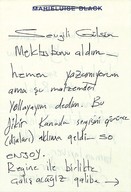 MARIELUISE BLACK
Sevgili Gülsen
Mektubunu aldım.
hemen yazamıyorum
ama şu matzemeni
yollayayım dedim. Bu
fikir Kanımda sergisini görünce
(diaları) aklıma geldi so
ensoy.
Regine ile birlikte
Çalışacağız galiba →